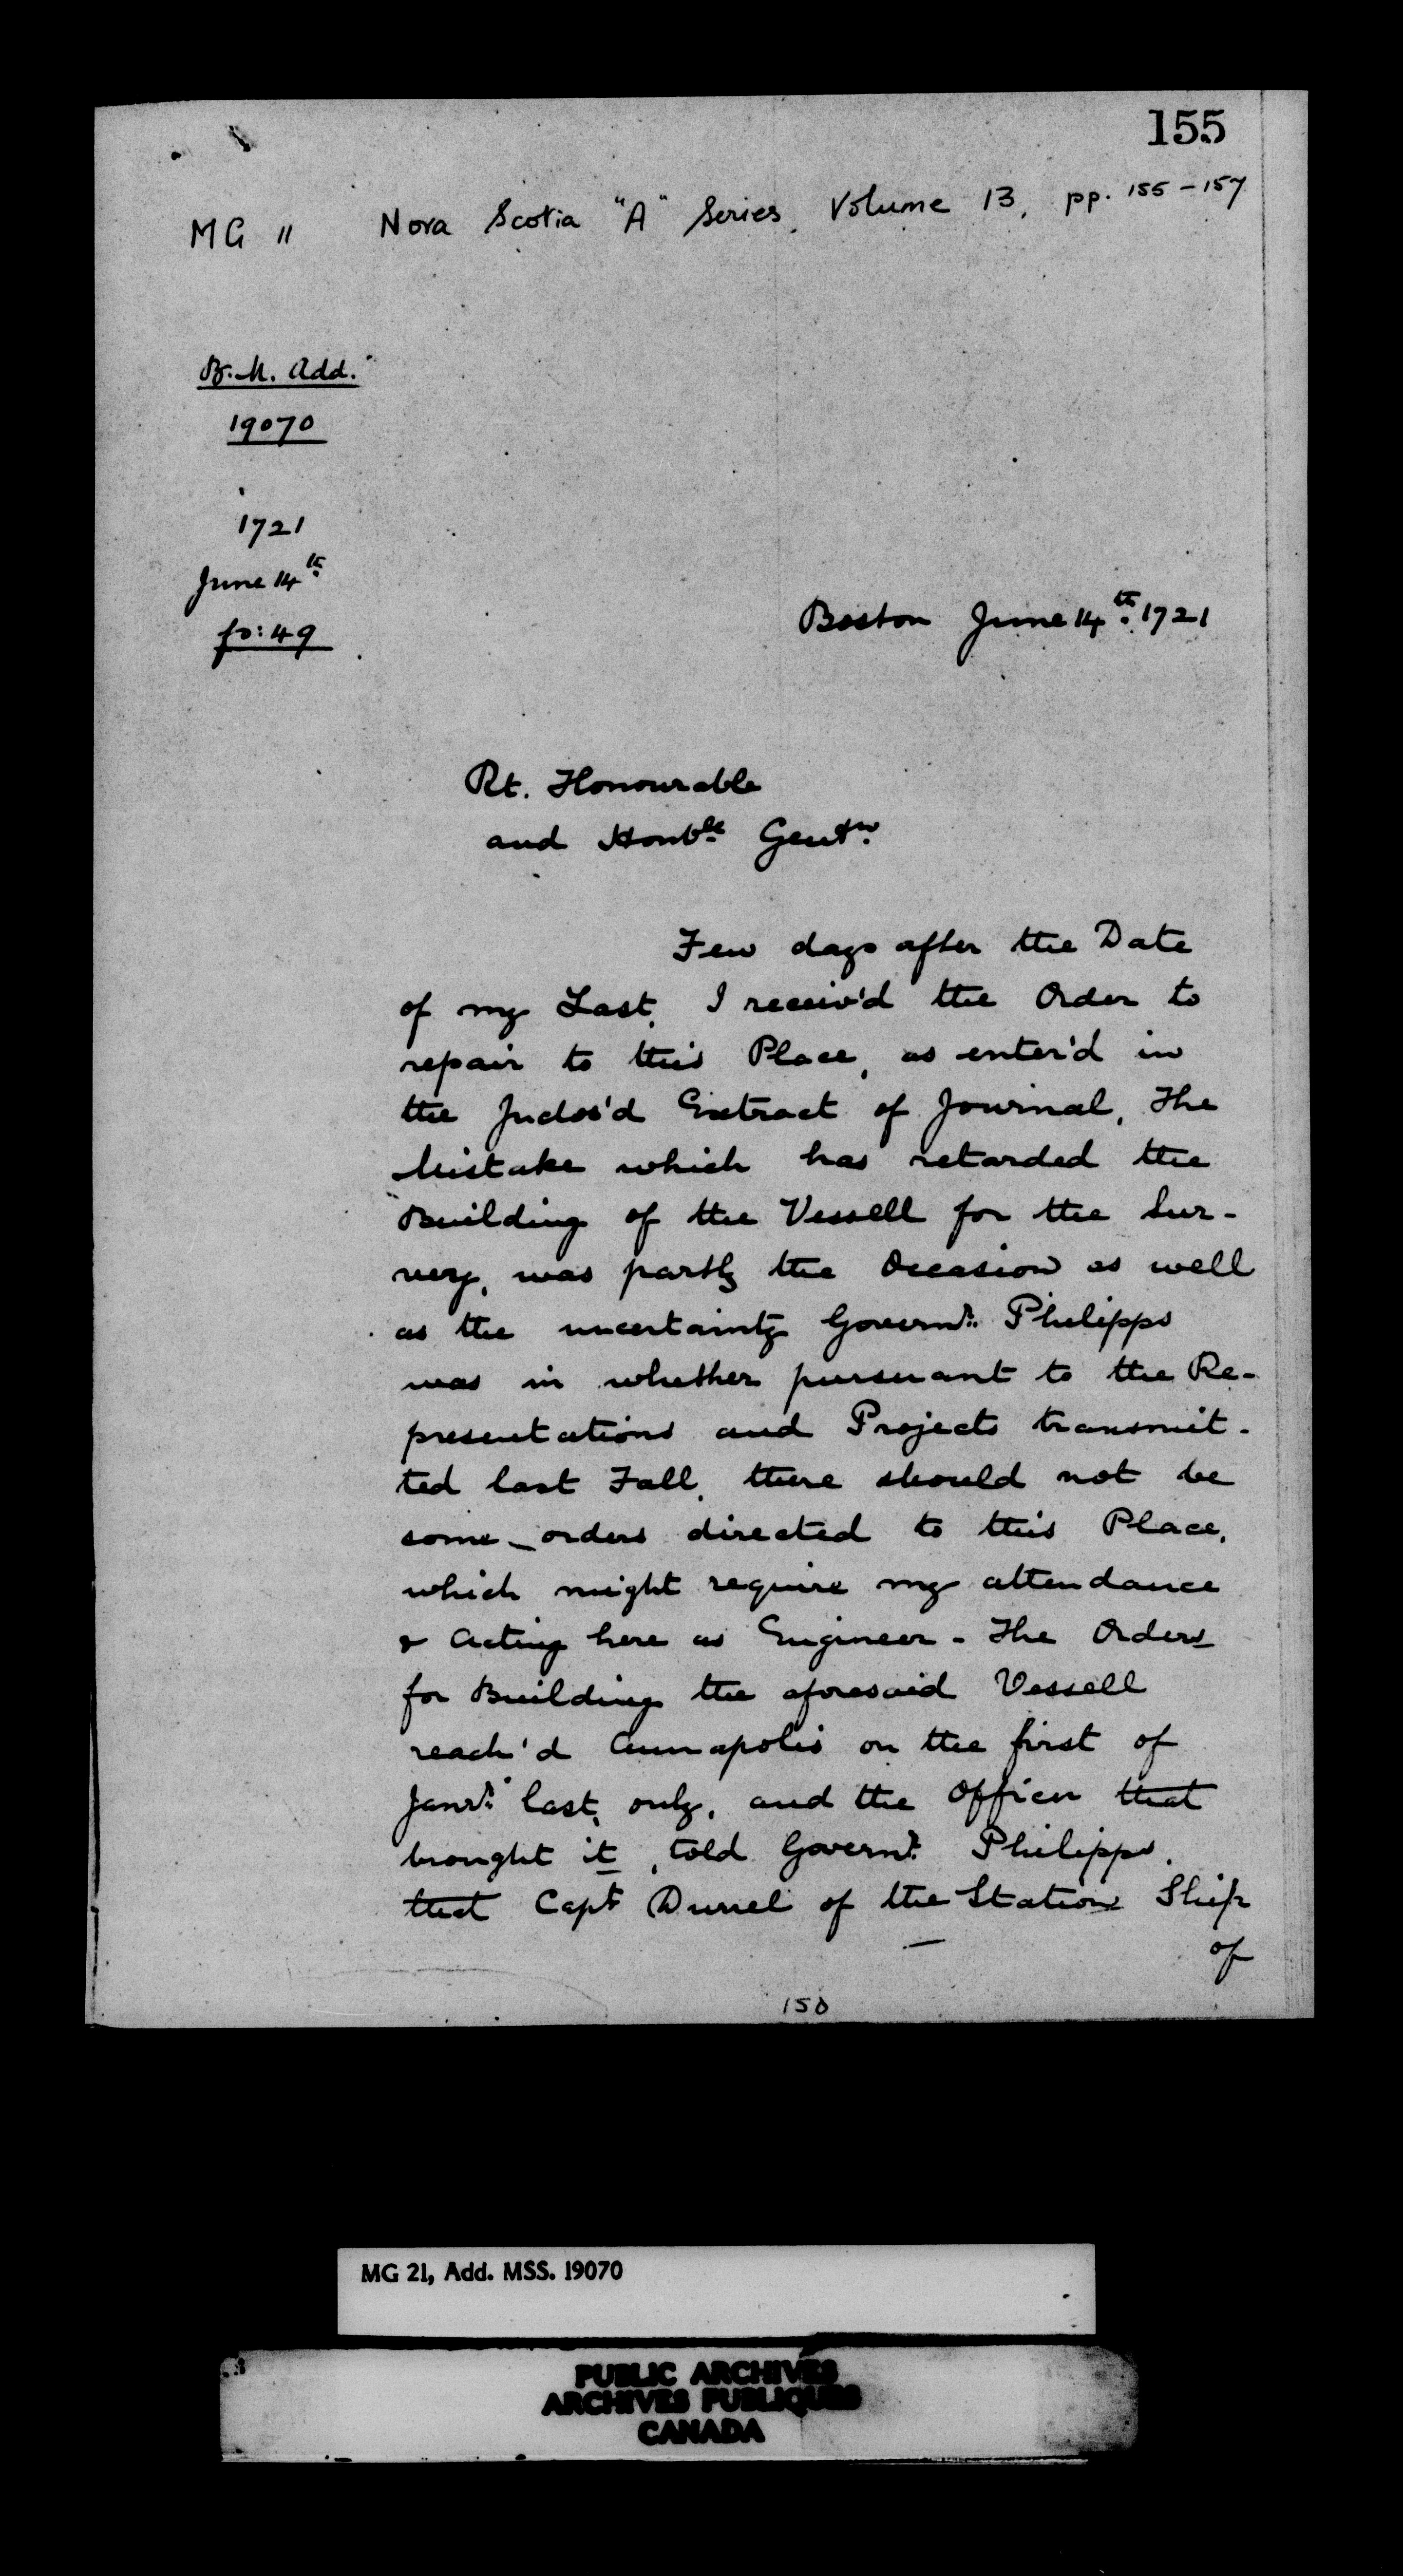 155
MG 11 Nova Scotia "A" Series, Volume 13, pp. 155-157
B.M. Add.
19070
1721
June 14th
fo: 49
Boston June 14th. 1721
Rt. Honourable
and Honble. Gentn.
Few days after the Date
of my Last, I receiv'd the Order to
repair to this Place, as enter'd in
the Inclos'd Extract of Journal, The
Mistake which has retarded the
Building of the Vessell for the Sur-
vey, was partly the Occasion as well
as the uncertainty Governr. Philipps
was in whether pursuant to the Re-
presentations and Projects transmit-
ted last Fall, there should not be
some orders directed to this Place,
which might require my attendance
& Acting here as Engineer - The Orders
for Building the aforesaid Vessell
reach'd Annapolis on the first of
Janry. last, only, and the Officer that
brought it, told Governr. Philipps,
that Capt Durrel of the Station Ship
of
150
MG 21, Add. MSS. 19070
PUBLIC ARCHIVES
ARCHIVES PUBLIQUES
CANADA